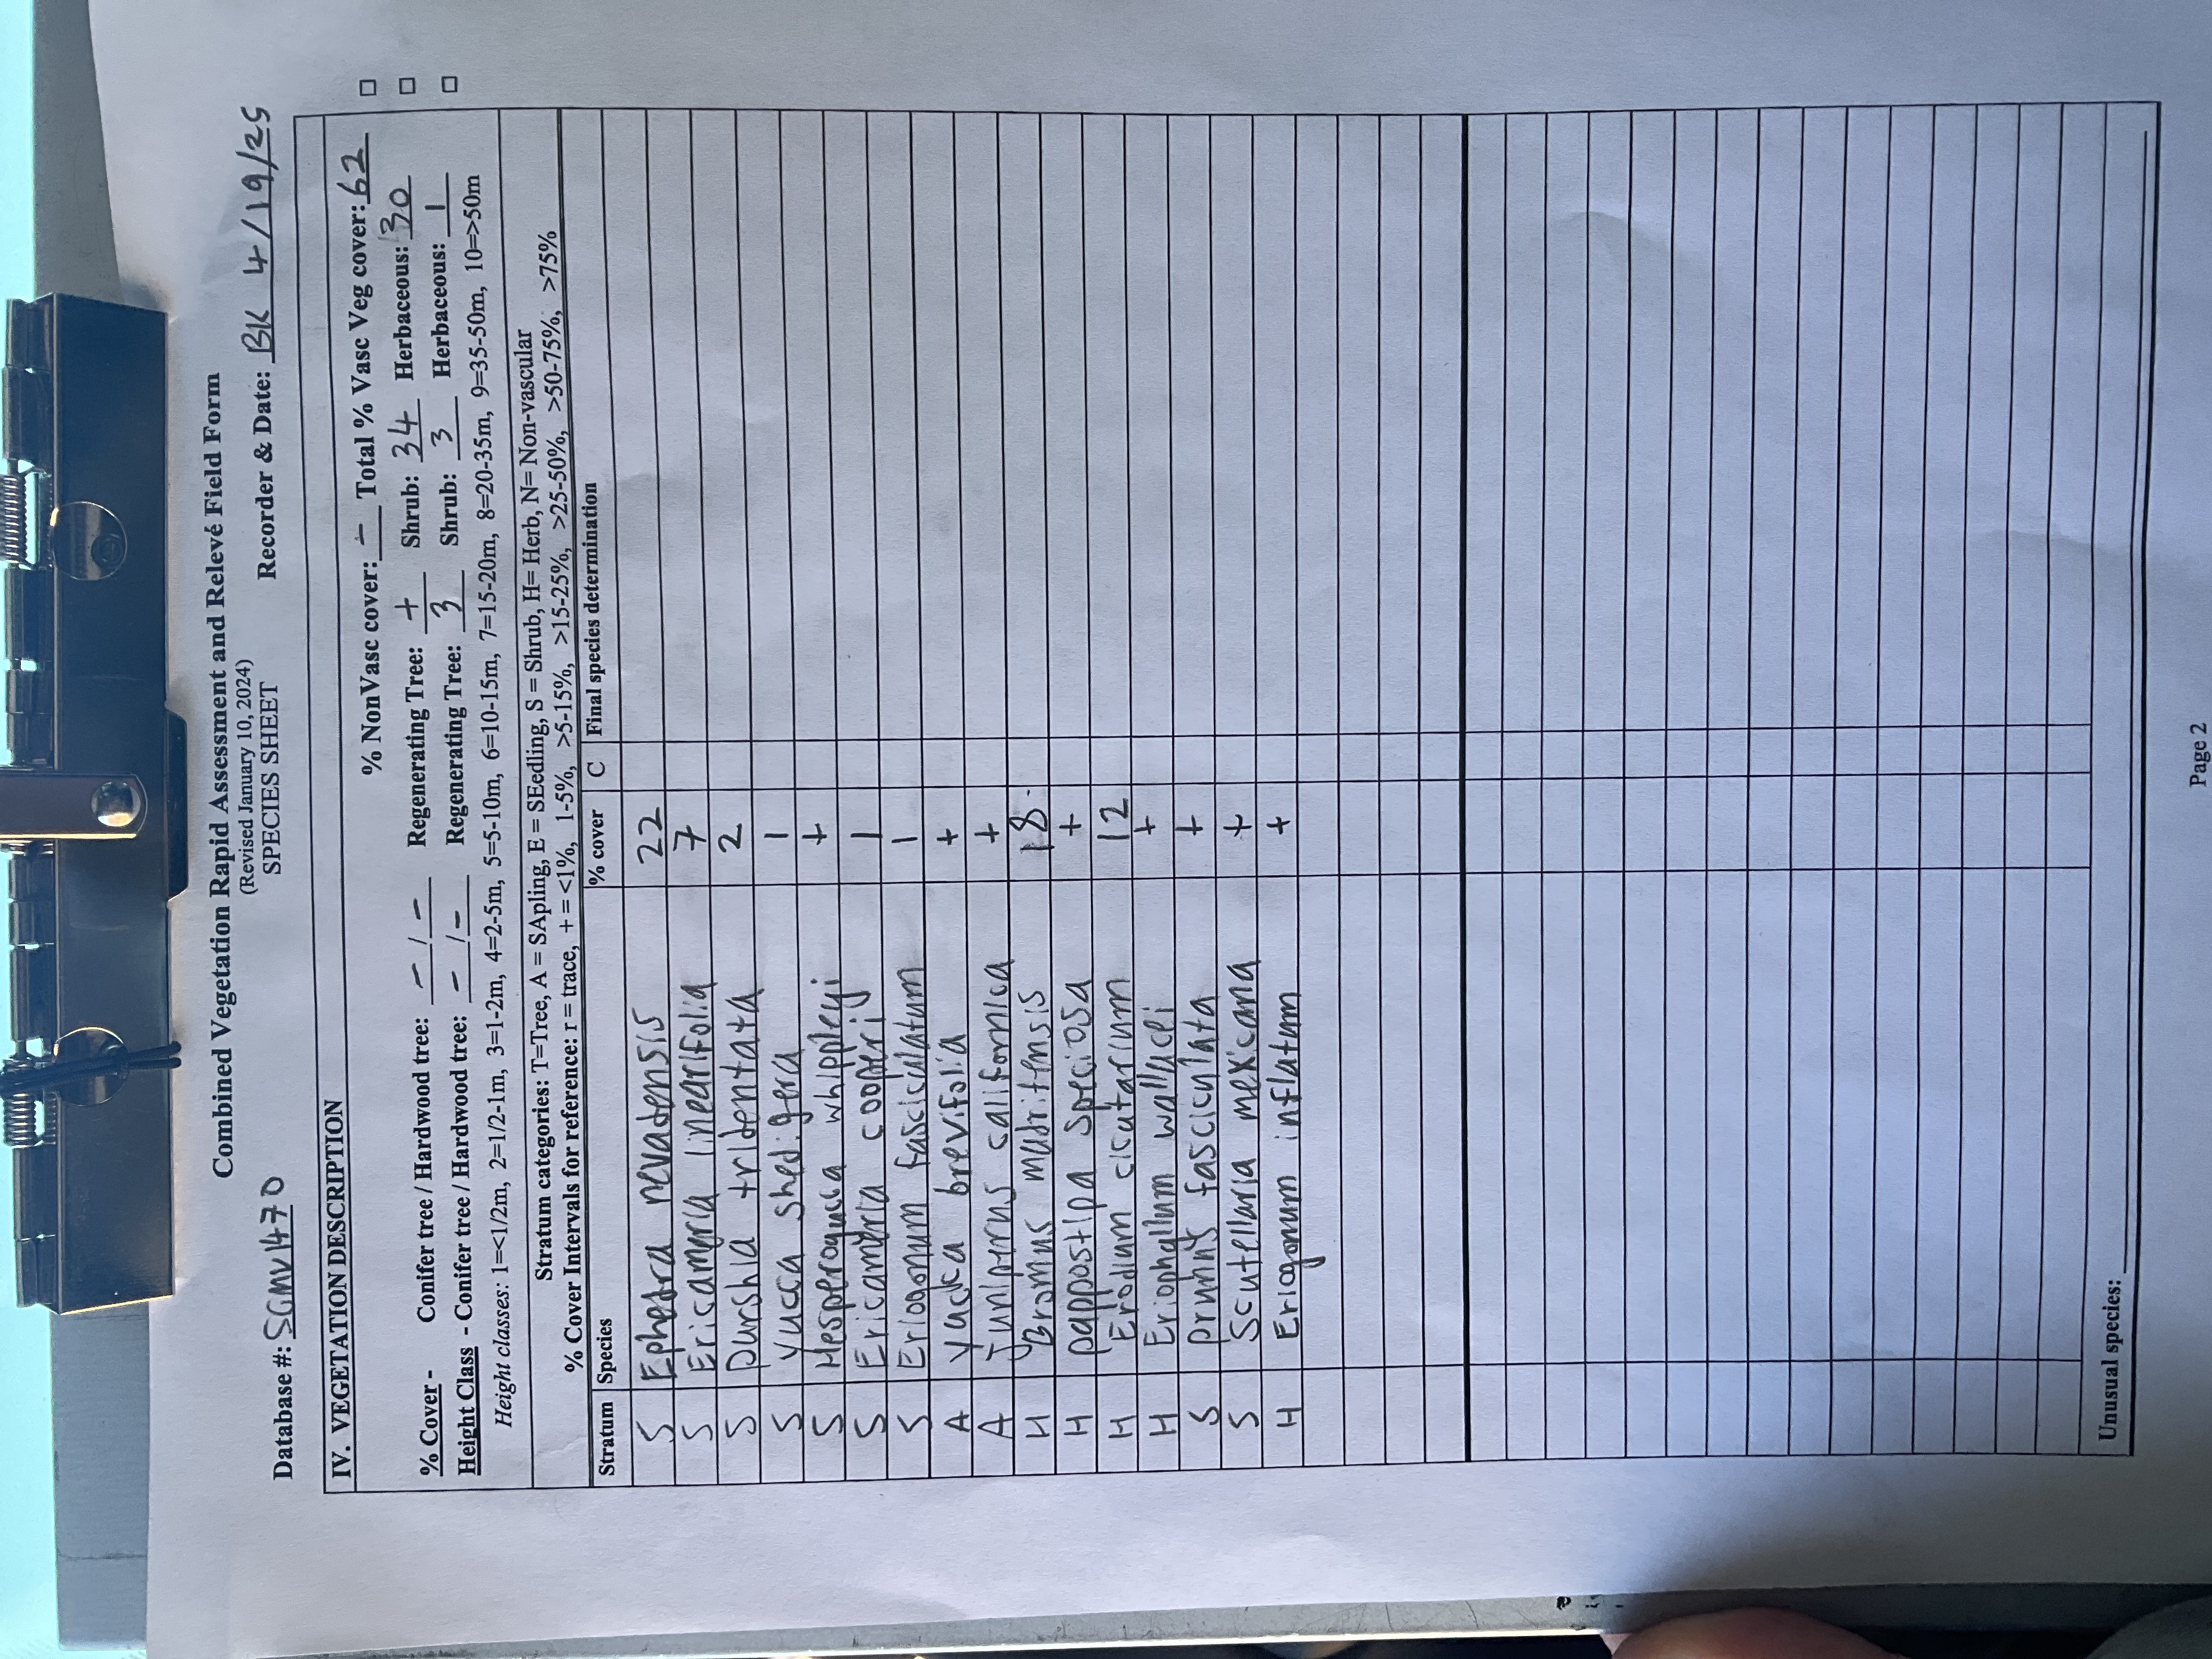 Combined Vegetation Rapid Assessment and Relevé Field Form
(Revised January 10, 2024)
SPECIES SHEET
Database #: SGMV1470 Recorder & Date: BK 4/19/25
IV. VEGETATION DESCRIPTION
% NonVasc cover: - Total % Vasc Veg cover: 62
% Cover - Conifer tree / Hardwood tree: - / - Regenerating Tree: + Shrub: 34 Herbaceous: 30
Height Class - Conifer tree / Hardwood tree: - / - Regenerating Tree: 3 Shrub: 3 Herbaceous: 1
Height classes: 1=<1/2m, 2=1/2-1m, 3=1-2m, 4=2-5m, 5=5-10m, 6=10-15m, 7=15-20m, 8=20-35m, 9=35-50m, 10=>50m
Stratum categories: T=Tree, A = SApling, E = SEedling, S = Shrub, H= Herb, N= Non-vascular
% Cover Intervals for reference: r = trace, + = <1%, 1-5%, >5-15%, >15-25%, >25-50%, >50-75%, >75%
Stratum Species % cover C Final species determination
S Ephedra nevadensis 22
S Ericameria linearifolia 7
S purshia tridentata 2
S yucca shedigera 1
S Hesperoyucca whippleyi +
S Ericameria cooperi 1
S Eriogonum fasciculatum 1
A yucka brevifolia +
A Juniperus californica +
H Bromus madritensis 18
H pappostipa speciosa +
H Erodium cicutarium 12
H Eriophyllum wallacei +
S prunus fasciculata +
S Scutellaria mexicana +
H Eriogonum inflatum +
Unusual species:
Page 2